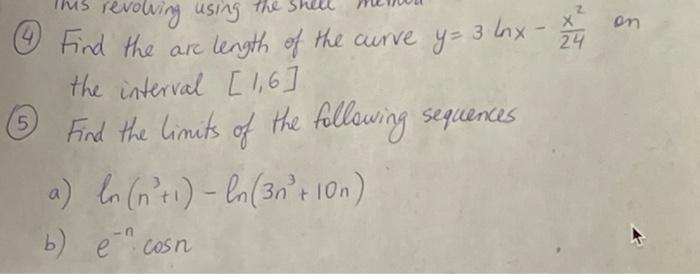 this revolving using the shell
④ Find the arc length of the curve y = 3 ln x - x²/24 on
the interval [1,6]
⑤ Find the limits of the following sequences
a) ln(n³+1) - ln(3n³+10n)
b) e⁻ⁿ cos n